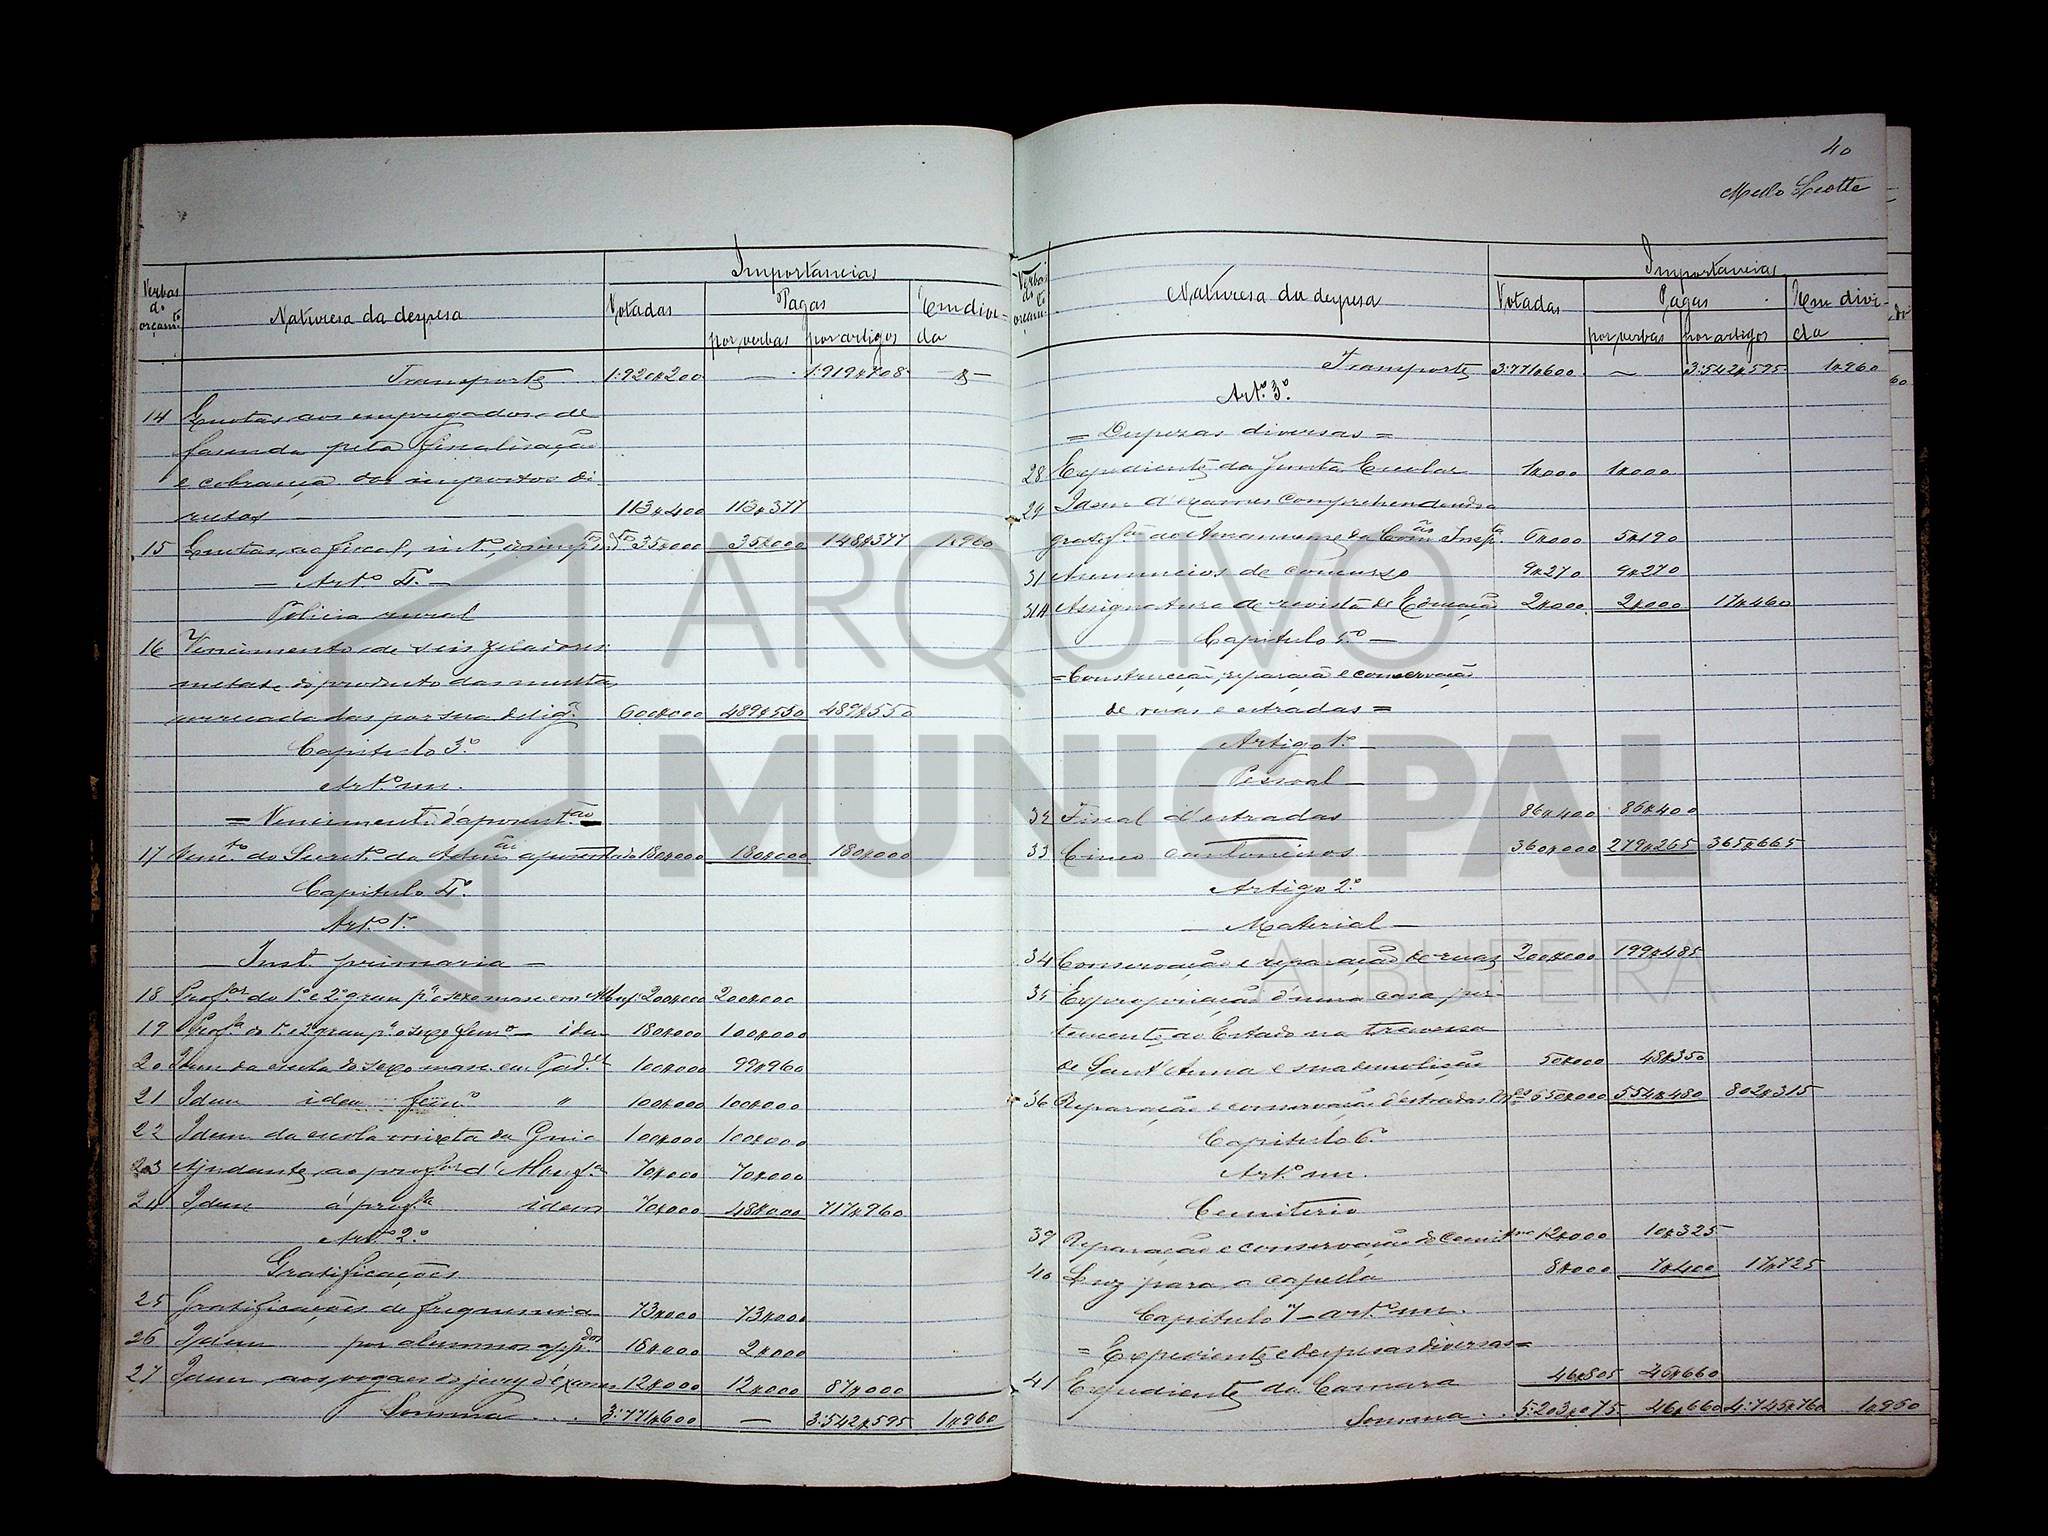 Importancias
Verbas do orçam.to
Natureza da despesa
Votadas
Pagas
Em divi-
da
por verbas
por artigos
Transporte 1:920$200 — 1:919$708 -$-
14 Quotas aos empregados de
fasenda pela fiscalisação
e cobrança dos impostos di
rectos 113$400 113$377
15 Quotas ao fiscal, 35$000 35$000 148$377 1$960
— Art.º 4.º —
Policia rural
16 Vencimento de seis zeladores
metade do producto das multas
arrecadadas por sua delig.ª 600$000 489$550 489$550
Capitulo 3.º
Art.º un.
= Venciment. d'aposent.ão =
17 Vem.to do Secret.º da Adm.ão aposentado 180$000 180$000 180$000
Capitulo 4.º
Art.º 1.º
— Inst. primaria —
18 Prof.or do 1.º e 2.º grau p.ª o sexo masc. em Albuf. 200$000 200$000
19 Prof.ª do 1.º e 2.º grau p.ª o sexo fem.º — idem 180$000 100$000
20 Idem da escola do sexo masc. em Pad.ne 100$000 99$960
21 Idem idem fem.º " 100$000 100$000
22 Idem da escola mixta da Guia 100$000 100$000
23 Ajudante ao prof.or d'Albuf.ª 70$000 70$000
24 Idem á prof.ra idem 70$000 48$000 717$960
Art.º 2.º
Gratificações
25 Gratificações de frequencia 73$000 73$000
26 Idem por alumnos app.dos 18$000 2$000
27 Idem aos vogaes do jury d'exames 12$000 12$000 87$000
Somma . . . 3:771$600 — 3:542$595 1$960
40
Mello Leotte
Importancias
Verbas do orçam.to
Natureza da despesa
Votadas
Pagas
Em divi-
da
por verbas
por artigos
Transporte 3:771$600 — 3:542$595 1$960
Art.º 3.º
= Despezas diversas =
28 Expediente da Junta Escolar 1$000 1$000
29 Idem d'exames comprehendendo
gratif.ão ao Amanuense da Com.ão Insp.ra 6$000 5$190
31 Annuncios de concurso 9$270 9$270
31A Assignatura de revista de Educação 2$000 2$000 17$460
— Capitulo 5.º —
= Construcção, reparação e conservação
de ruas e estradas =
Artigo 1.º —
— Pessoal —
32 Fiscal d'estradas 86$400 86$400
33 Cinco cantoneiros 360$000 279$265 365$665
Artigo 2.º
— Material —
34 Conservação e reparação de ruas 200$000 199$485
35 Expropriação d'uma casa per-
tencente ao Estado na travessa
de Sant'Anna e sua demolição 50$000 48$350
36 Reparação e conservação d'estradas 650$000 554$480 802$315
Capitulo 6.º
Art.º un.
Cemiterio
39 Reparação e conservação do Cemit.rio 12$000 10$325
40 Luz para a capella 8$000 7$400 17$725
Capitulo 7 — art.º un.
= Expediente e despesas diversas =
41 Expediente da Camara 46$805 46$660
Somma . . 5:203$075 46$660 4:745$760 1$960
ARQUIVO
MUNICIPAL
ALBUFEIRA